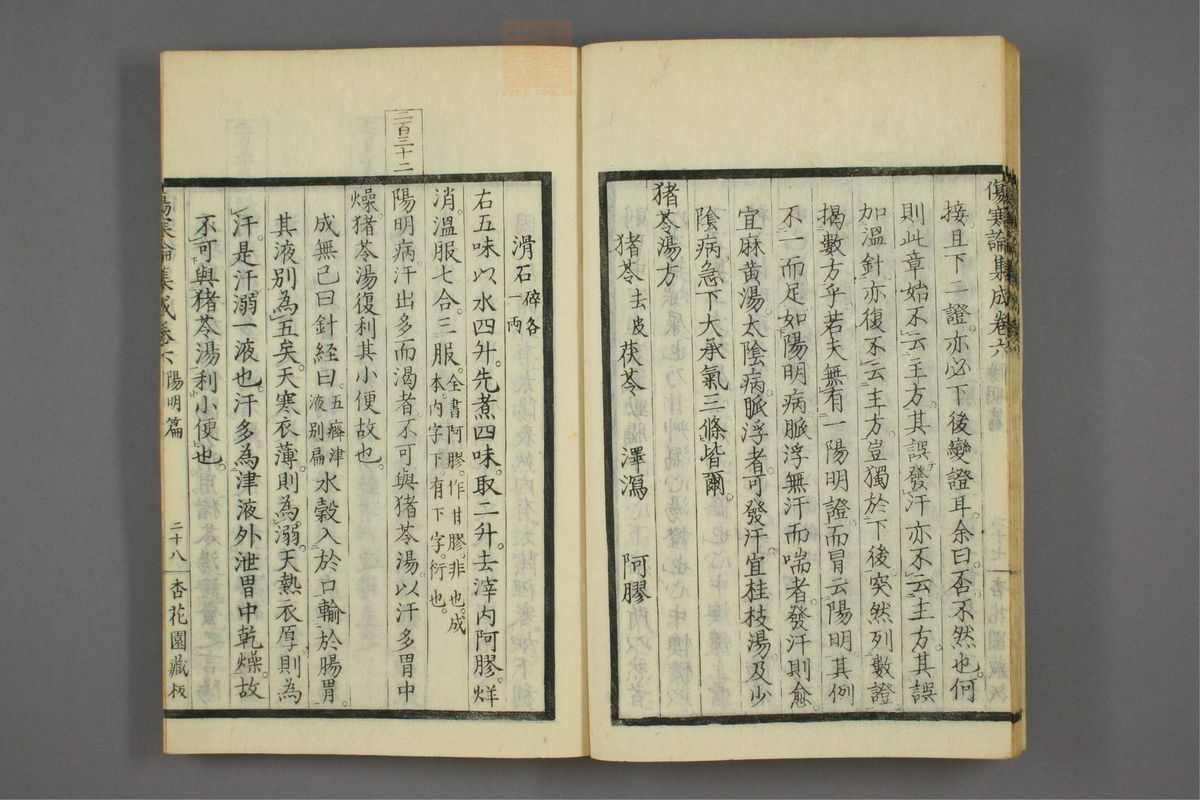 傷寒論集成卷六
接。且下二證。亦必下後變證耳。余曰。否。不然也。何
則此章始不云主方。其誤發汗亦不云主方。其誤
加溫針。亦復不云主方。豈獨於下後突然列數證
揭數方乎。若夫無有一陽明證。而冒云陽明。其例
不一而足。如陽明病。脈浮無汗而喘者。發汗則愈。
宜麻黃湯。太陰病。脈浮者。可發汗。宜桂枝湯。及少
陰病急下大承氣三條。皆爾。
猪苓湯方
猪苓去皮 茯苓 澤瀉 阿膠
滑石碎各一兩
右五味。以水四升。先煮四味。取二升。去滓。內阿膠。烊
消。溫服七合。三服。全書阿膠。作甘膠。非也。成本。內字下有下字。衍也。
二百三十二
陽明病。汗出多而渴者。不可與猪苓湯。以汗多胃中
燥。猪苓湯復利其小便故也。
成無已曰。針經曰。五癃津液別扁 水穀入於口。輸於腸胃。
其液別為五矣。天寒衣薄。則為溺。天熱衣厚。則為
汗。是汗溺一液也。汗多為津液外泄。胃中乾燥。故
不可與猪苓湯利小便也。
傷寒論集成卷六 陽明篇 二十八 杏花園藏板